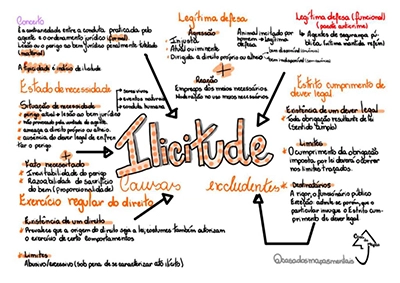 Conceito
É a contrariedade entre a conduta praticada pelo
agente e o ordenamento jurídico (formal).
Lesão ou o perigo ao bem jurídico penalmente tutelado
(material)
A tipicidade é indício de ilicitude
Legítima defesa
Agressão
Injusta
Atual ou iminente
Dirigida a direito próprio ou alheio
Reação
Emprego dos meios necessários
Moderação no uso meios necessários
Legítima defesa (funcional)
Agentes de segurança pú-
blica (vítima mantida refém)
Estado de necessidade
Situação de necessidade
perigo atual e lesão ao bem jurídico
não provocado pela vontade do agente
ameaça a direito próprio ou alheio
ausência de dever legal de enfren-
tar o perigo
seres vivos
eventos natural
conduta humana
Fato necessitado
Inevitabilidade do perigo
Razoabilidade do sacrifício
do bem (proporcionalidade)
Ilicitude
Causas excludentes
Estrito cumprimento de
dever legal
Existência de um dever legal
Toda obrigação resultante de lei
(sentido amplo)
Limites
O cumprimento da obrigação
imposta por lei deverá ocorrer
nos limites traçados.
Destinatários
A rigor, o funcionário público
Exceção: admite-se porém, que o
particular invoque o Estrito cum-
primento do dever legal
Exercício regular do direito
Existência de um direito
Prevalece que a origem do direito seja a lei, costumes também autorizam
o exercício de certo comportamentos
Limites
Abusivo/excessivo (sob pena de se caracterizar ato ilícito)
@casadosmapasmentais